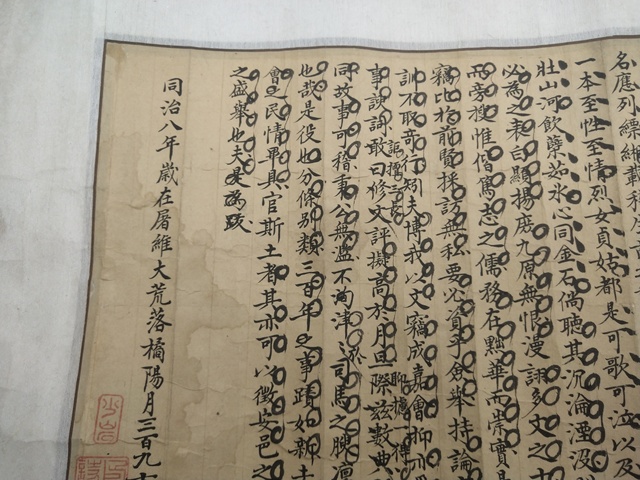 名應列縹緗載
一本至性至情烈女貞姑都是可歌可泣以及
壯山河飲櫱茹氷心同金石倘聽其沉淪湮沒
必為之表白顯揚庶九原無恨漫詡多文之
而旁搜惟偕篤志之儒務在黜華而崇實是
竊比於前賢採訪無私要必資乎僉舉持論
訓不取奇行矧夫博我以文竊成嘉會抑
事諛詞敢曰修文評擬高於月旦際茲數典
同故事可稽秉公無濫不向津於司馬之腴
也哉是役也分條別類三百年之事蹟如新土
會之民情畢具官斯土者其亦可以徵安邑之
之盛舉也夫是為跋
同治八年歲在屠維大荒落橘陽月三百九十